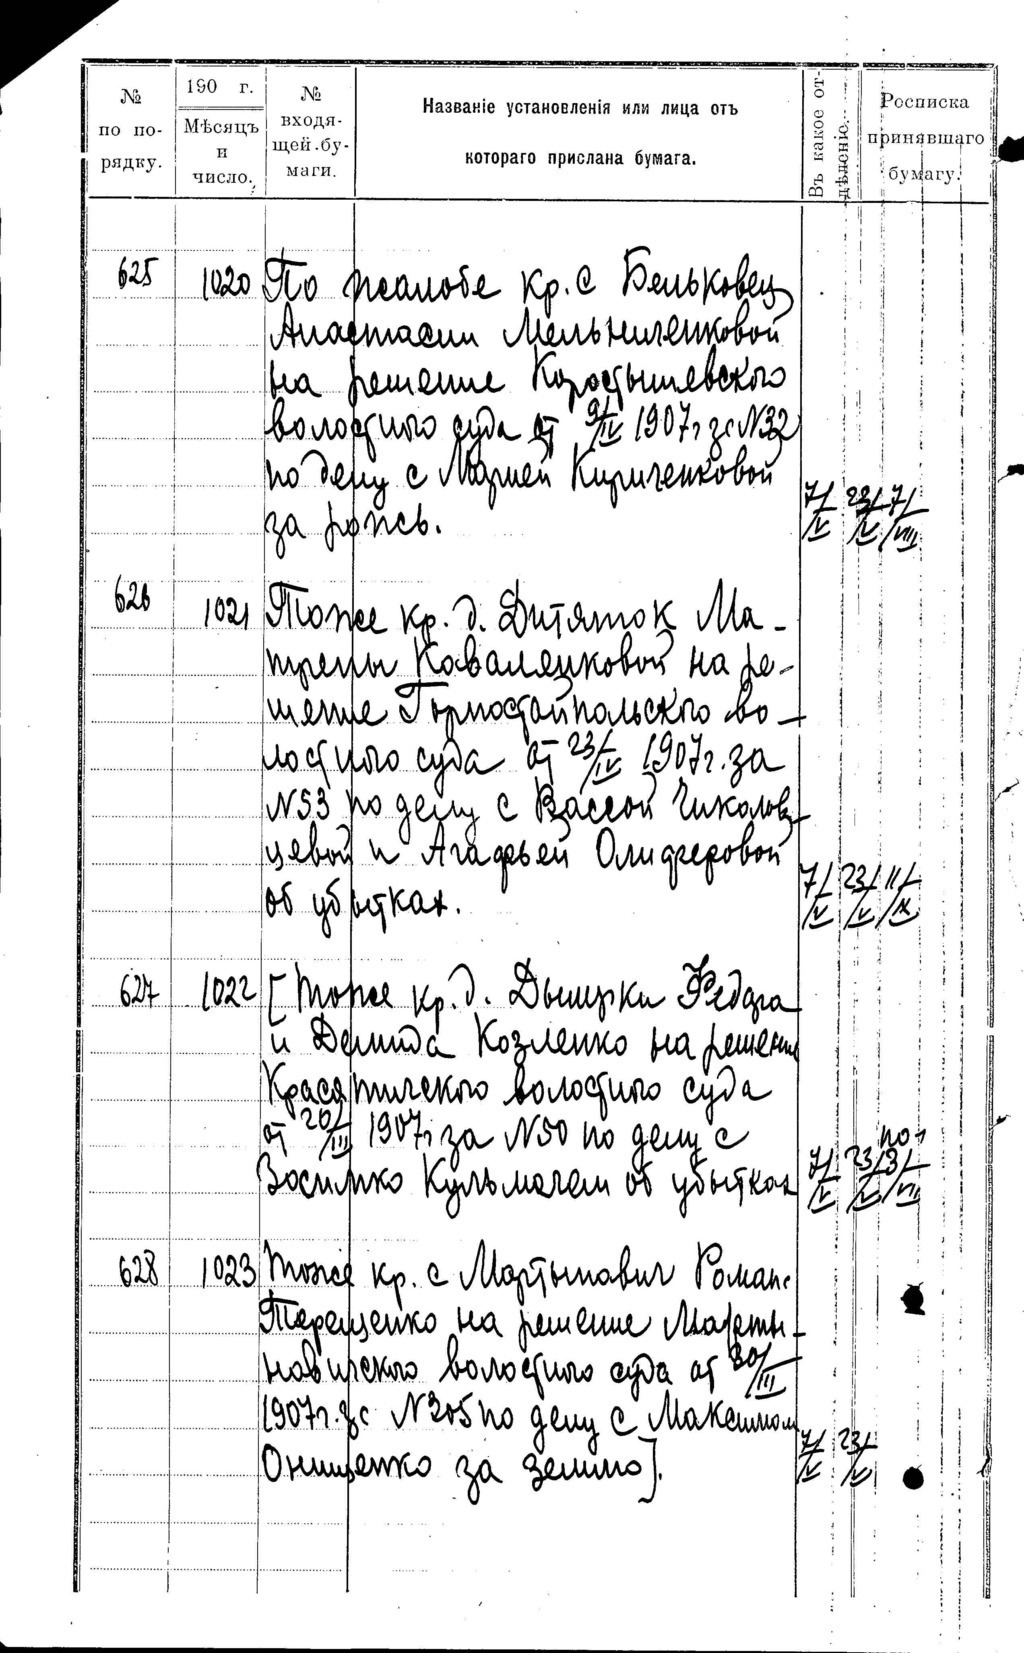 № по по-рядку.
190 г. Мѣсяцъ и число.
№ входя-щей бу-маги.
Названіе установленія или лица отъ
котораго прислана бумага.
Въ какое от-дѣленіе.
Росписка принявшаго бумагу.
625 1020 По жалобе кр. с Бельковец
Анастасии Мельниченковой
на решение Коростышевского
волостного суда от 9/IV 1907 г за N32
по делу с Марией Кириченковой
7/V 23/V 7/VIII
за рожь.
626 1021 Тоже кр. д. Дитяток Ма-
трены Коваленковой на ре-
шение Горностайпольского во-
лостного суда от 23/IV 1907г. за
N53 по делу с Вассой Чиколов-
цевой и Агафьей Олиферовой
7/V 23/V 11/IX
об убытках.
627 1022 [Тоже кр. д. Дымирки Федора
и Демида Козленко на решение
Красятичского волостного суда
от 20/III 1907г за N50 по делу с
по-
Зосимко Кульмачем об убытках
7/V 23/V 3/VII
628 1023 Тоже кр. с Мартынович Романа
Терещенко на решение Марты-
новичского волостного суда от 30/III
1907г. за N205 по делу с Максимом
Онищенко за землю].
7/V 23/V